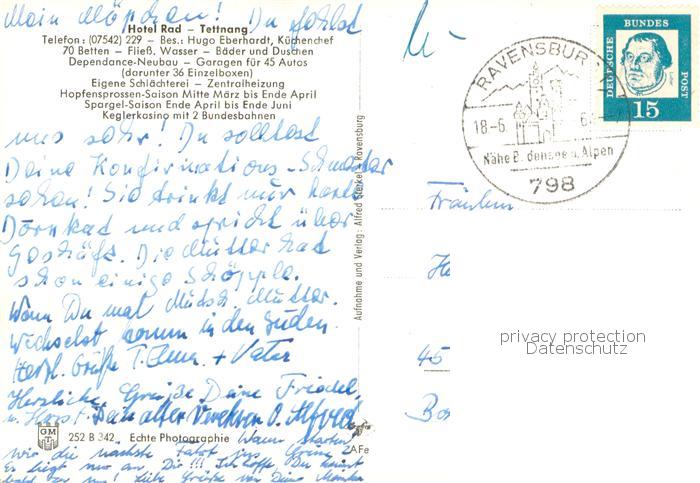 Mein Möpchen! Du fehlst
Hotel Rad – Tettnang
Telefon: (07542) 229 – Bes.: Hugo Eberhardt, Küchenchef
70 Betten – Fließ. Wasser – Bäder und Duschen
Dependance-Neubau – Garagen für 45 Autos
(darunter 36 Einzelboxen)
Eigene Schlächterei – Zentralheizung
Hopfensprossen-Saison Mitte März bis Ende April
Spargel-Saison Ende April bis Ende Juni
Keglerkasino mit 2 Bundesbahnen
uns sehr! Du solltest
Deine Konfirmations-Schwester
sehen! Sie trinkt nur
Dornkat und spricht über
Geschäft. Die Mutter hat
schon einige Schöpple.
Wenn Du mal Mutter.
wechselst komm in den Süden.
Herzl. Grüße T. + Vater
Herzliche Grüße Deine Friedel
u. Horst. Dein alter Verehrer O. Alfred
GM
252 B 342 Echte Photographie Wann starten
ZAFe
wir die nächste Fahrt ins Grüne?
Es liegt nur an Dir!!! Ich hoffe, Du kommst
bald zu uns! Liebe Grüße von Deine
Aufnahme und Verlag: Alfred Ravensburg
RAVENSBURG
18-6.
Nähe Bodensee u. Alpen
798
DEUTSCHE BUNDES POST
15
Fräulein
45
privacy protection
Datenschutz